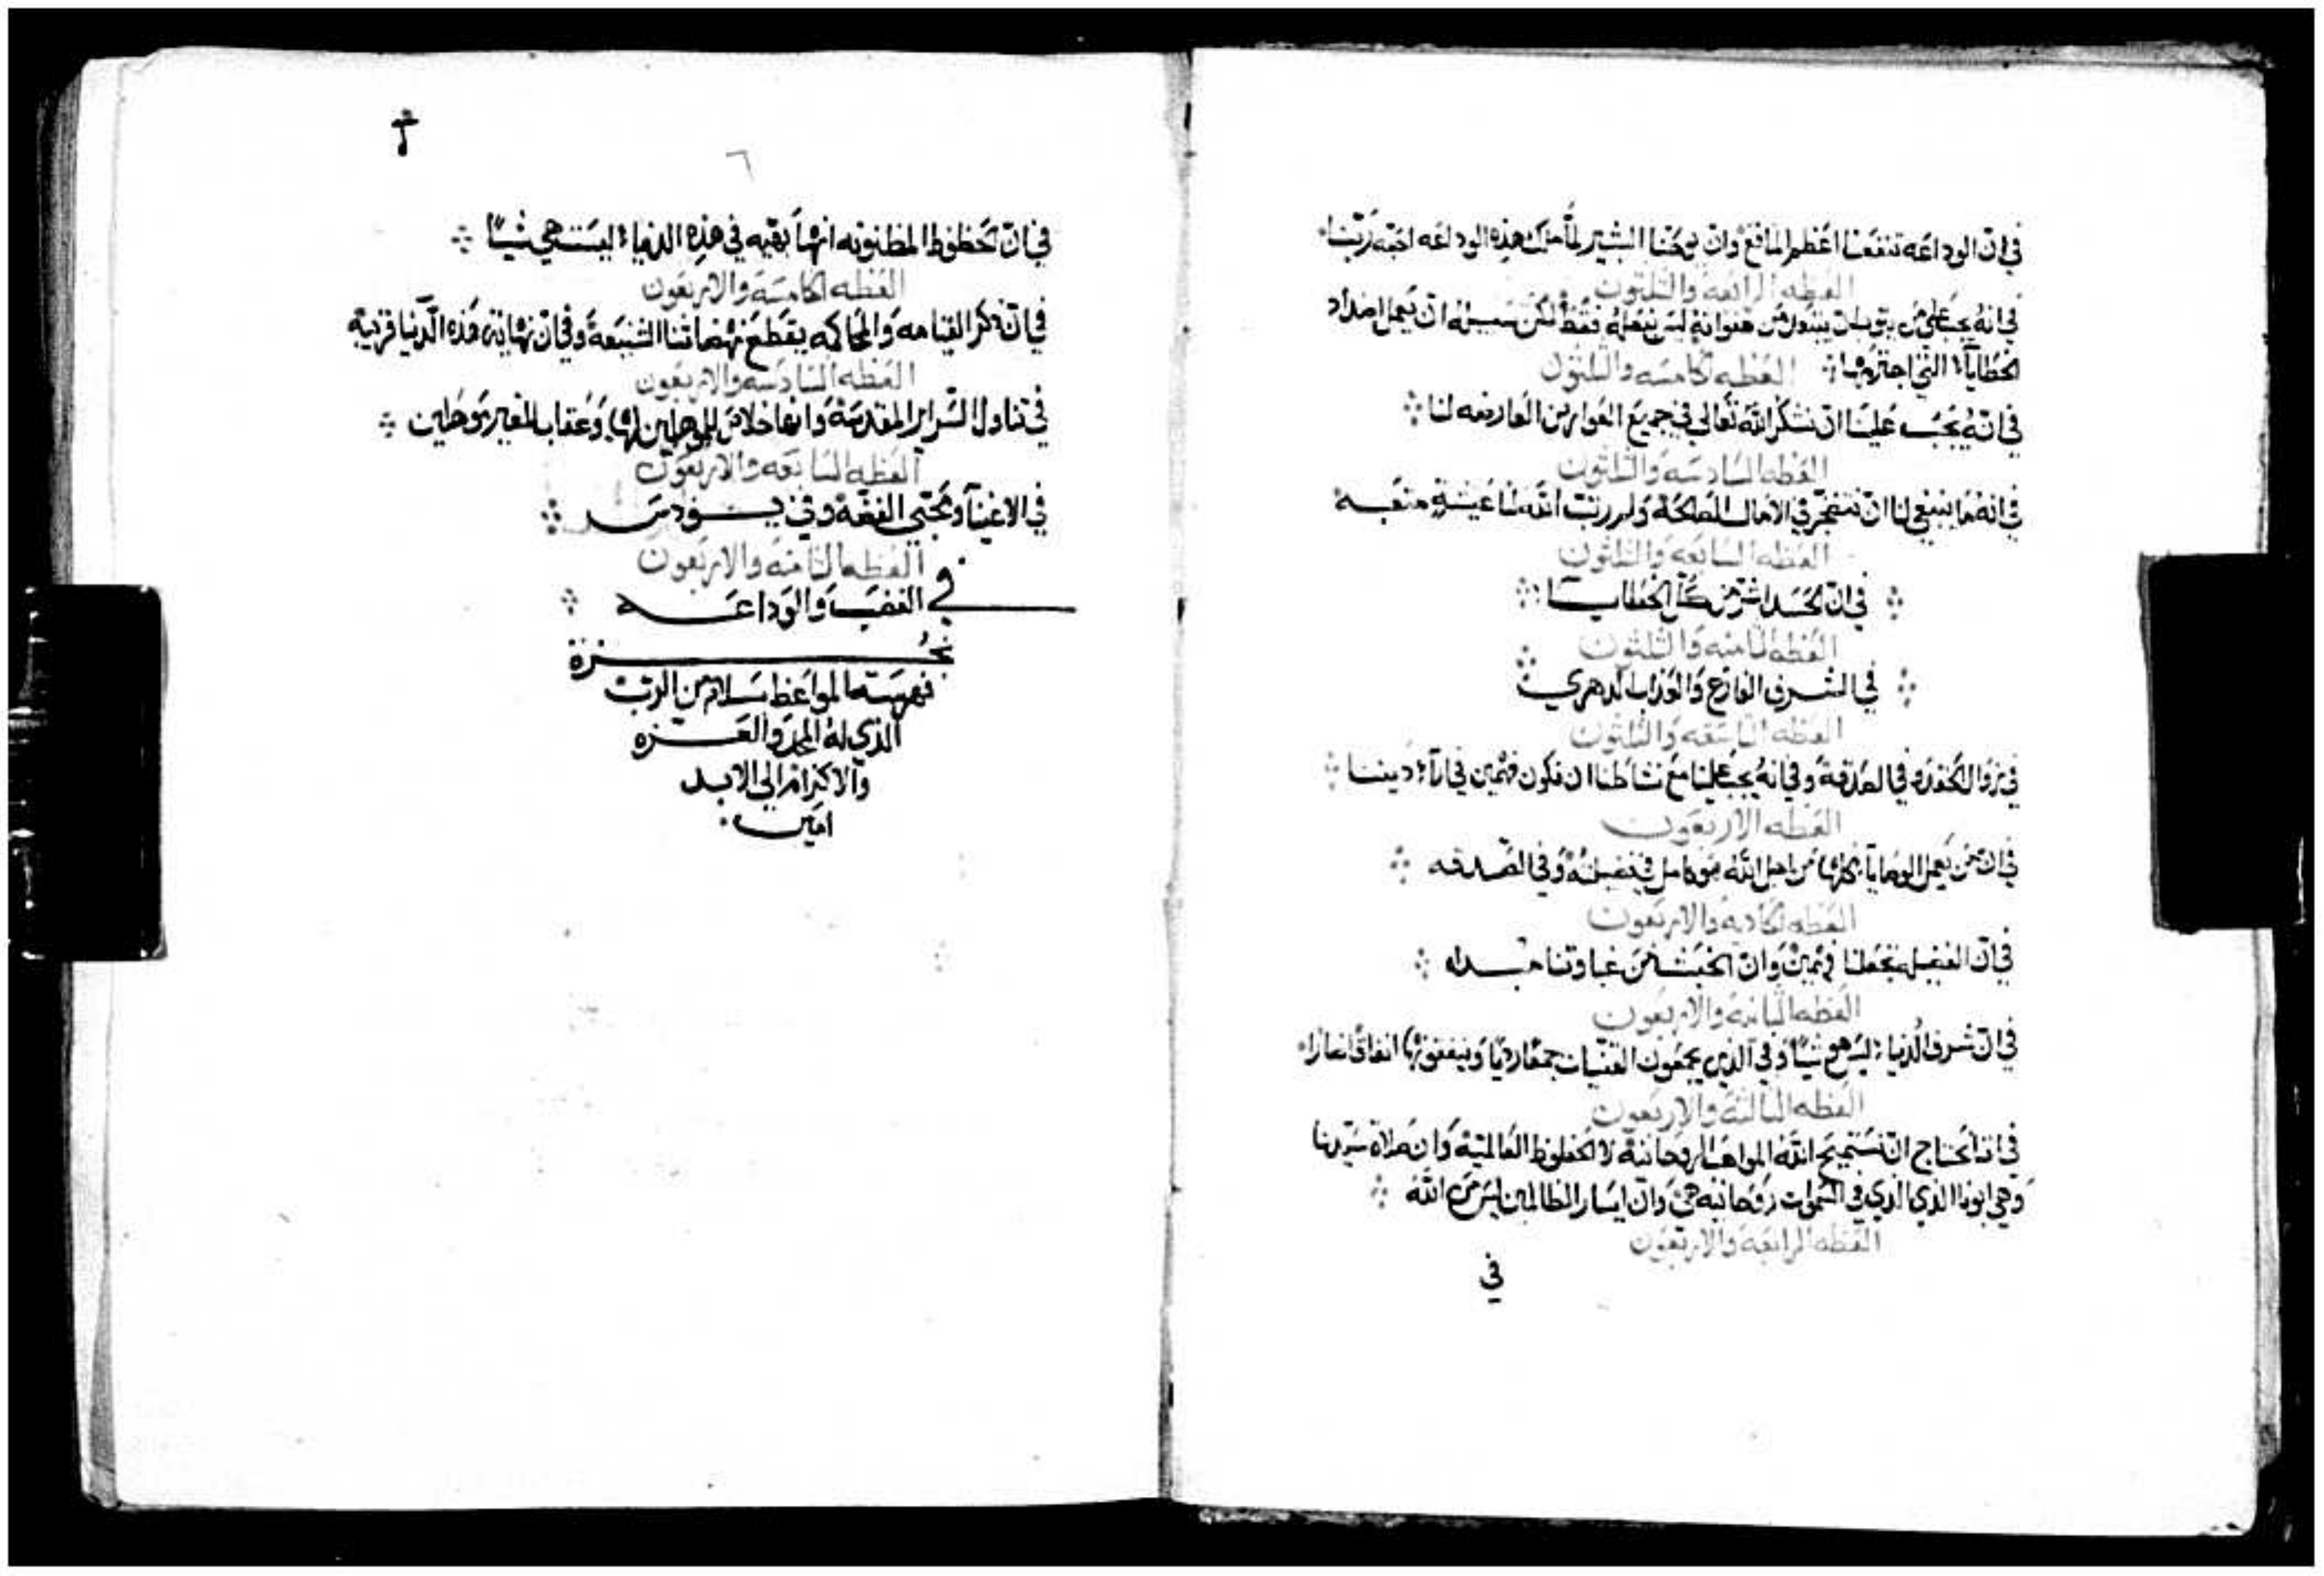 في ان الوداعه تنفعنا اعظم المنافع وان يوحنا البشير لما ملك هذه الوداعه احبه ربنا
العظه الرابعه والثلثون
في انه يجب على من يتوب ان يتنول من هفواته ليس بفعله فقط لكن سبيله ان يعمل اضداد
الخطايا التي اجترمها العظه الخامسه والثلثون
في انه يجب علينا ان نشكر الله تعالى في جميع العوارض العارضه لنا
العظه السادسه والثلثون
في انه ما ينبغي لنا ان نتضجر في الاعمال الصالحة ولو رتب الله لنا عيشة متعبه
العظه السابعه والثلثون
في ان الحسد اشر من كل الخطايا
العظه الثامنه والثلثون
في الشرف الفارغ والعذاب الدهري
العظه التاسعه والثلثون
في زوال الحقد وفي الصدقة وفي انه يجب علينا مع نشاطنا ان نكون فهمين في آراء ديننا
العظه الاربعون
في ان من يعمل الوصايا كلها من اجل الله هو كامل في فضيلته وفي الصدقه
العظه الحاديه والاربعون
في ان الفضيله تجعلنا فهمين وان الخبث من غباوتنا مبداه
العظه الثانيه والاربعون
في ان شرف الدنيا ليس هو شيا وفي الذي يجمعون القنيات جمعا رديا وينفقونها انفاقا ضارا
العظه الثالثة والاربعون
في اننا نحتاج ان نستميح الله المواهب الروحانية لا الحظوظ العالمية وان صلاة سيدنا
وهي ابونا الذي الذي في السموات روحانيه هي وان ايسار الظالمين ليس من الله
العظه الرابعه والاربعون
في
٦
في ان الحظوظ المظنونه انها بقيه في هذه الدنيا ليست هي شيا
العظه الخامسه والاربعون
في ان تذكر القيامه والمحاكمه يقطع نهضاتنا الشنيعة وفي ان نهاية هذه الدنيا قريبة
العظه السادسه والاربعون
في تناول السراير المقدسة وانها خلاص للموهلين لها وعقاب للغير موهلين
العظه السابعه والاربعون
في الاغنيا ومحبي الفضه وفي يودس
العظه الثامنه والاربعون
في الغضب والوداعه
نجزة
فهرسة المواعظ بسلام من الرب
الذي له المجد والعزه
والاكرام الى الابد
امين